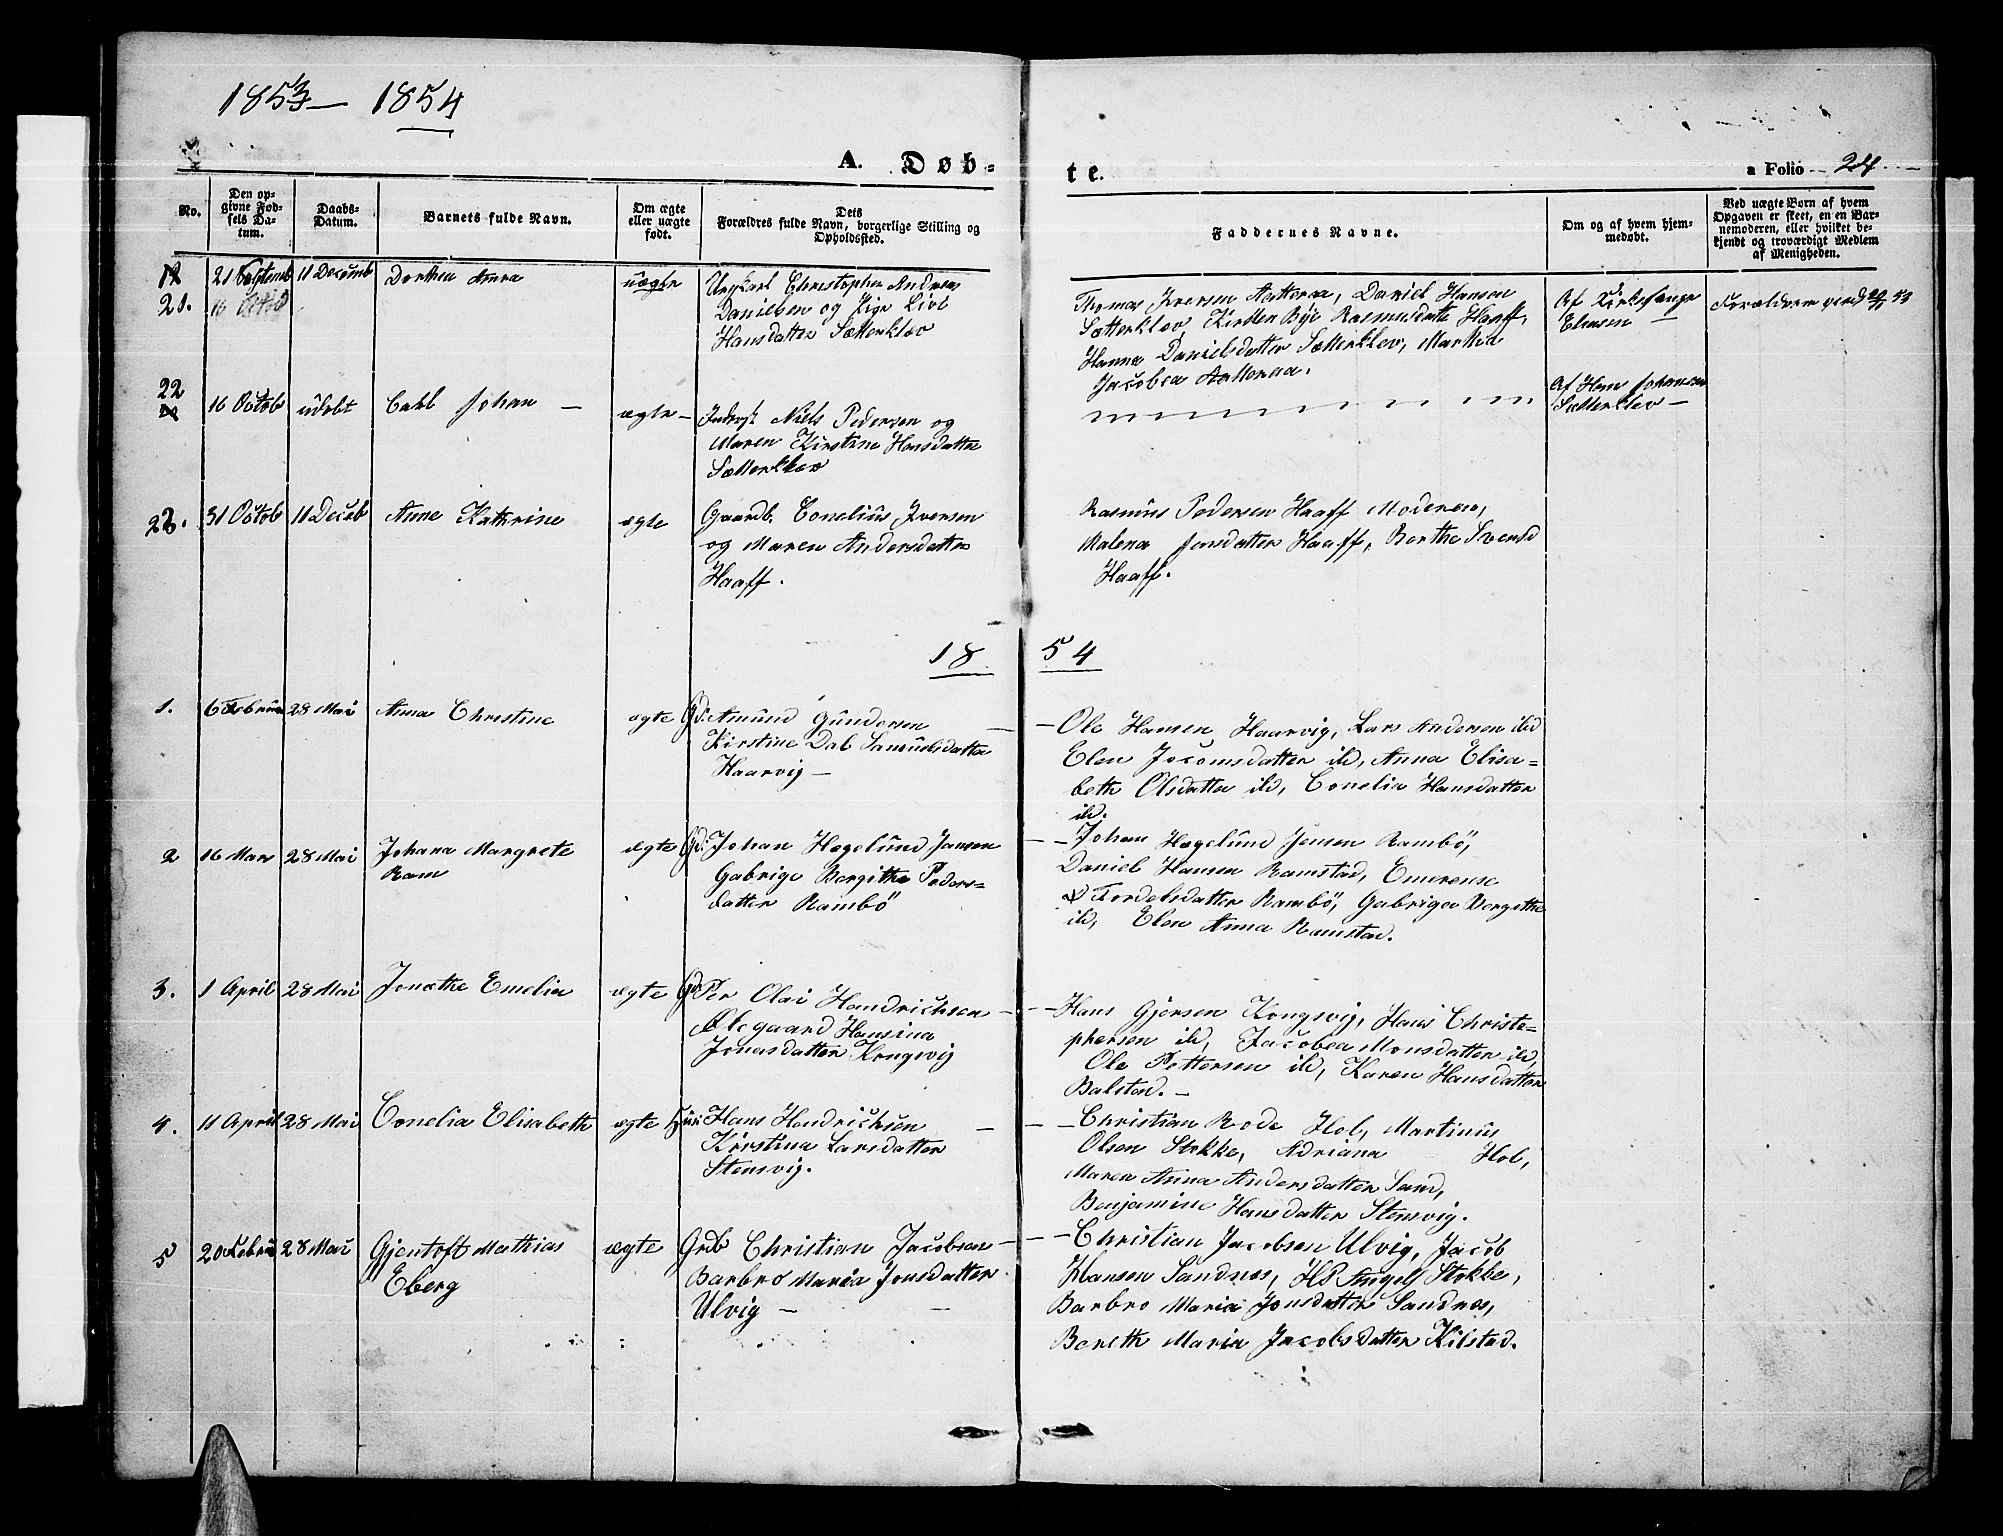 1853 — 1854
A. Døb-
te.
a Folio 24
No.
Den opgivne Fødsels Datum.
Daabs-Datum.
Barnets fulde Navn.
Om ægte eller uægte født.
Dets Forældres fulde Navn, borgerlige Stilling og Opholdssted.
Faddernes Navne.
Om og af hvem hjemmedøbt.
Ved uægte Børn af hvem Opgaven er skeet, en en Barnemoderen, eller hvilket bekjendt og troværdigt Medlem af Menigheden.
21.
21 Septemb
11 Decemb
Dorthea Anna
uægte
Ungkarl Christopher Andreas
Danielsen og Pige Live
Hansdatter Sætterklev
Thomas Iversen Aatteraa, Daniel Hansen
Sætterklev, Kirsten Rasmusdatt Haaff,
Hanna Danielsdatter Sætterklev, Martha
Jacobea Aatteraa.
Af Kirkesanger
Eliasen —
Forældrene 53
22
16 Octob
udøbt
Carl Johan —
ægte —
Niels Pedersen og
Maren Kirstine Hansdatter
Sætterklev
Af Hans Johansen
Sætterklev —
23.
31 Octob
11 Deceb
Anne Kathrine
ægte
Gaardb. Conelius Iversen
og Maren Andersdatter
Haaff.
Rasmus Pedersen Haaff Moderen,
Malena Jensdatter Haaff, Berthe Svensd
Haaff.
18 54
1.
6 Februa
28 Mai
Anna Christine
ægte
Gd. Amund Gundersen —
Kirstine Dal Samuelsdatter
Haarvig —
— Ole Hansen Haarvig, Lars Andersen ibd
Elen Jocomsdatter ibd, Anna Elisa=
beth Olsdatter ibd, Conelia Hansdatter
ibd.
2
16 Mars
28 Mai
Johana Margrete
Ram
ægte
Gd. Johan Hegelund Jensen
Gabriga Bergithe Peders=
datter Rambö
— Johan Hegelund Jensen Rambö,
Daniel Hansen Ramstad, Emerense
Tordelsdatter Rambö, Gabriga Bergithe
ibd, Elen Anna Ramstad.
3.
1 April
28 Mai
Jonæthe Emelia
ægte
Gd Per Olai Hendrichsen —
Olegaard Hansina
Jonasdatter Kongsvig
— Hans Gjersen Kongsvig, Hans Christo=
phersen ibd, Jacobea Monsdatter ibd,
Ole Pettersen ibd, Karen Hansdatter
Balstad. —
4.
11 April
28 Mai
Conelia Elisabeth
ægte
Hans Hendrichsen —
Kirstina Larsdatter
Stensvig.
— Christian Rode Hol, Martinus
Olsen Stokke, Adriana Hol,
Maren Anna Andersdatter Sand,
Benjamine Hansdatter Stensvig.
5
20 Febru
28 Mai
Gjentoft Mathias
Eberg
ægte
Grdb Christian Jacobsen —
Barbro Maria Jonsdatter
Ulvig —
— Christian Jacobsen Ulvig, Jacob
Hansen Sandnes, HP Angell Stokke,
Barbro Maria Jonsdatter Sandnes,
Bereth Maria Jacobsdatter Kilstad.